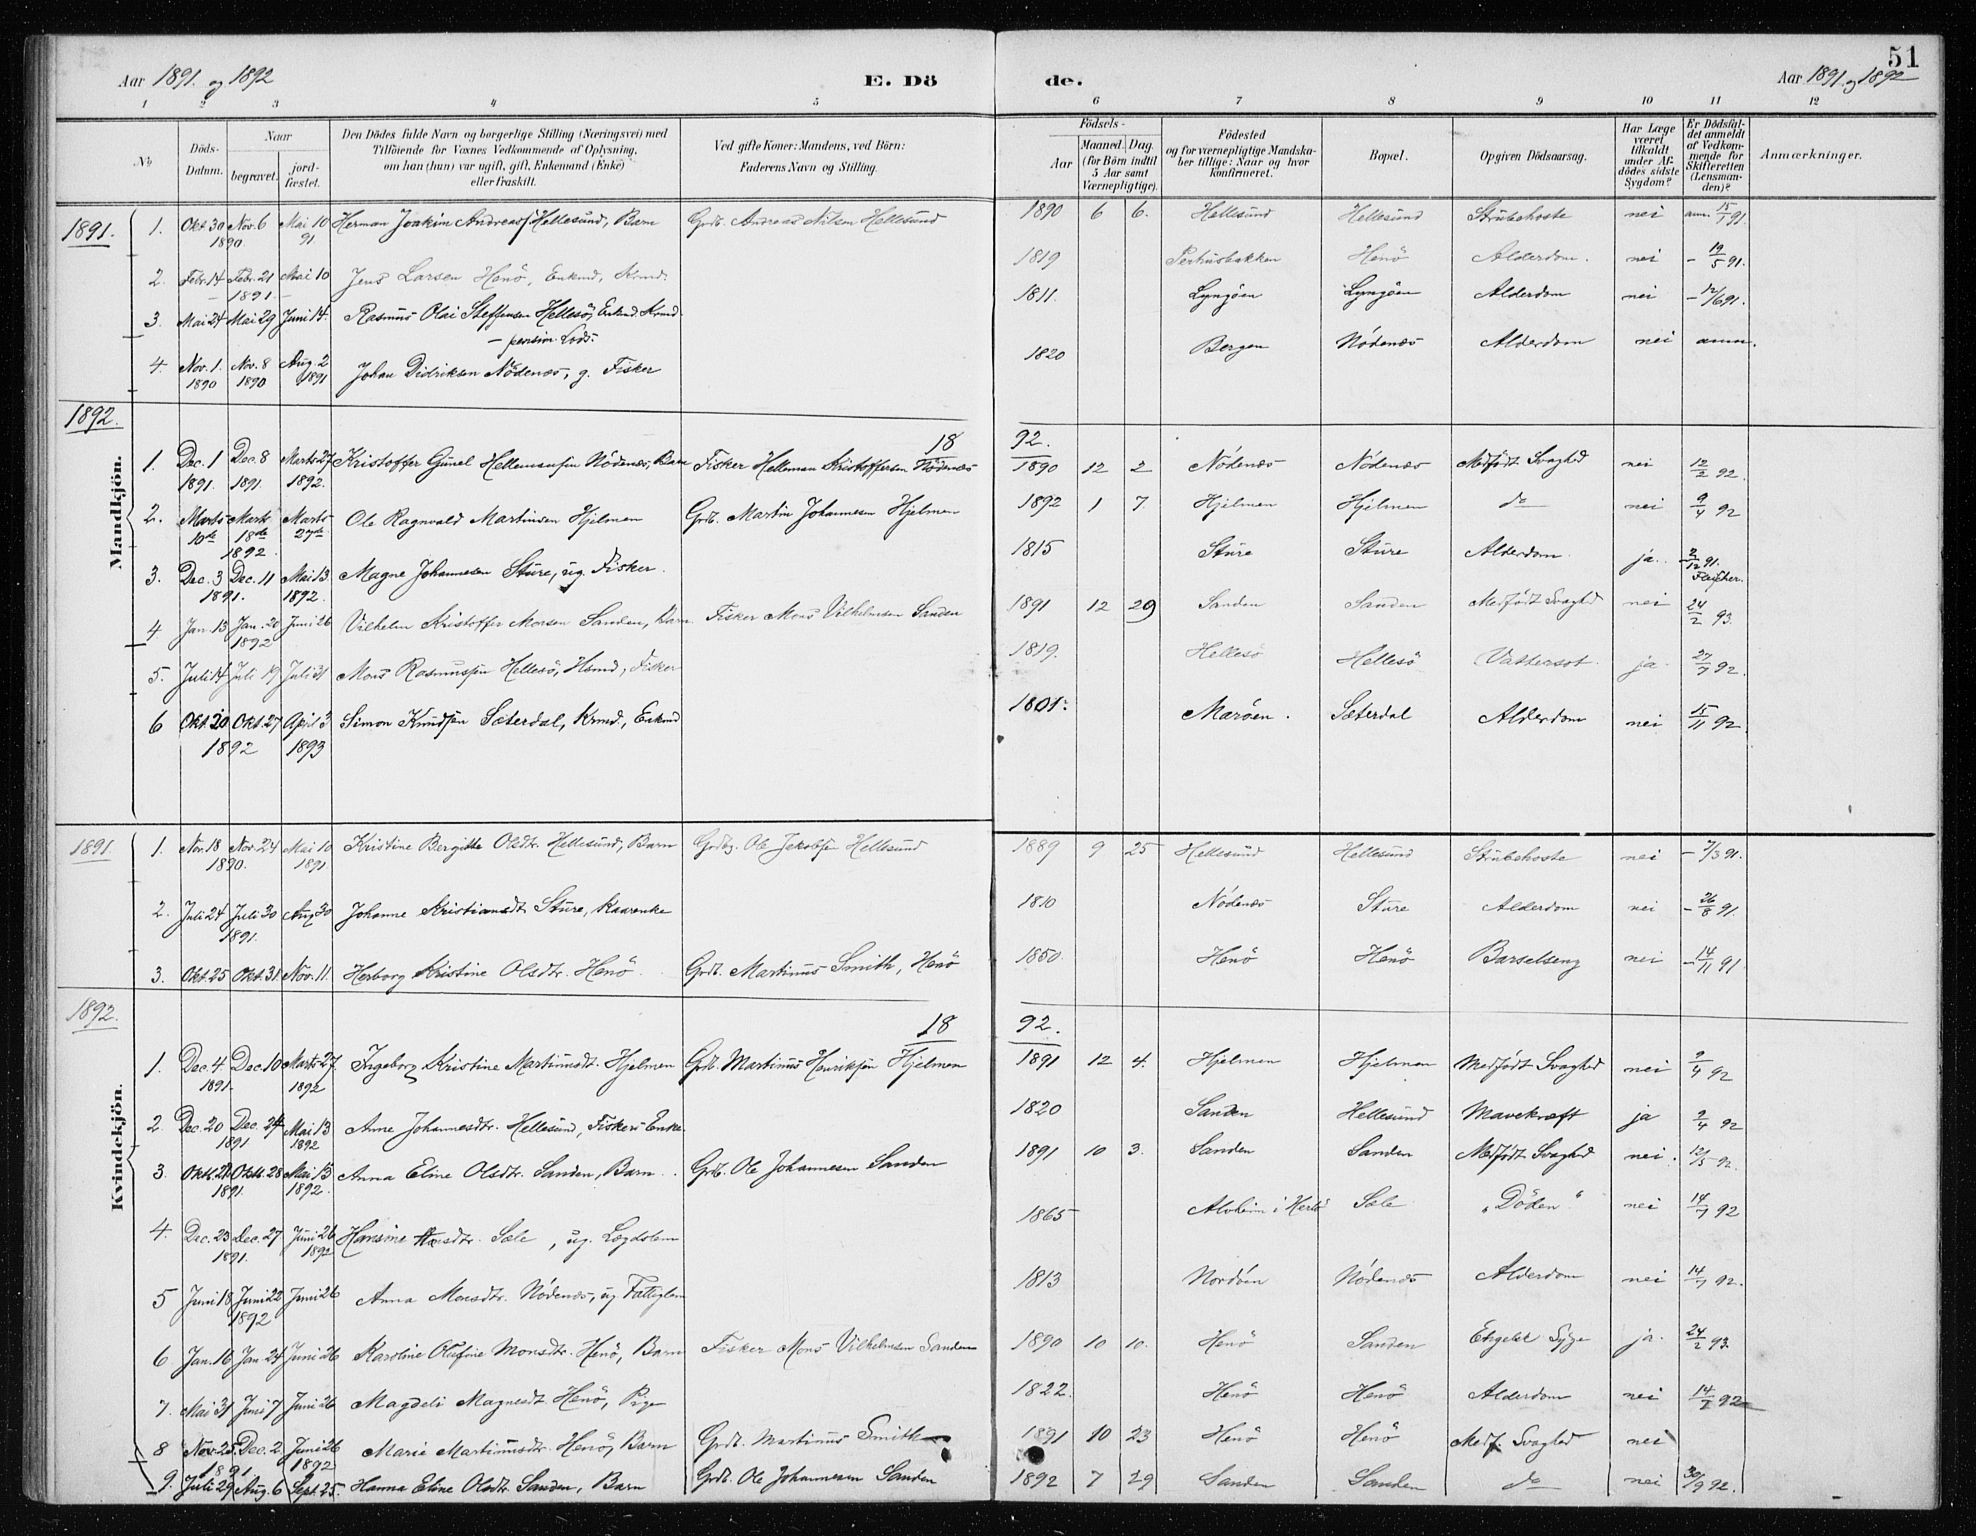 51
Aar 1891. og 1892
E. Dö
de.
Aar 1891. og 1892
1 2 3 4 5 6 7 8 9 10 11 12
No
Döds-Datum.
Naar
begravet.
jord-fæstet.
Den Dödes fulde Navn og borgerlige Stilling (Næringsvei) med
Tilföiende for Voxnes Vedkommende af Oplysning,
om han (hun) var ugift, gift, Enkemand (Enke)
eller fraskilt.
Ved gifte Koner: Mandens, ved Börn:
Faderens Navn og Stilling.
Födsels-
Aar
Maaned. Dag.
(for Börn indtil
5 Aar samt
Værnepligtige).
Födested
og for værnepligtige Mandska-
ber tillige: Naar og hvor
konfirmeret.
Bopæl.
Opgiven Dödsaarsag.
Har Læge
været
tilkaldt
under Af-
dödes sidste
Sygdom?
Er Dödsfal-
det anmeldt
af Vedkom-
mende for
Skifteretten
(Lensman-
den)?
Anmærkninger.
Mandkjön.
1891.
1. Okt 30 Nov. 6 1890 Mai 10 91 Herman Joakim Andreass. Hellesund, Barn Grdb. Andreas Nilsen Hellesund 1890 6 6. Hellesund Hellesund Strubehoste nei anm. 15/1 91.
2. Febr. 14 Febr. 21 Mai 10 - 1891 - Jens Larsen Henö, Enkmd, Krmd. 1819 Perhusbakken Henö Alderdom. nei - 19/5 91.
3. Mai 24 Mai 29 Juni 14. Rasmus Olai Steffensen Hellesö, Enkmd. Krmd. 1811. Lyngöen Lyngöen Alderdom nei - 12/6 91.
- pension. Lods.
4. Nov. 1. 1890 Nov. 8 1890 Aug. 2 1891 Johan Didriksen Nödenæs, g. Fisker 1820 Bergen Nödenæs Alderdom nei anm.
1892.
18 92.
1. Dec. 1 1891. Dec. 8 1891. Marts 27 1892. Kristoffer Gunel Hellemansen Nödenæs, Barn Fisker Helleman Kristoffersen Nödenæs 1890 12 2 Nödenæs Nödenæs Medfödt Svaghed nei 12/2 92.
2. Marts 10de Marts 18de Marts 27de 1892. Ole Ragnvald Martinsen Hjelmen Grdb. Martin Johannesen Hjelmen 1892 1 7. Hjelmen Hjelmen do nei 9/4 92
3. Dec. 3 Dec. 11 1891. Mai 13. 1892. Magne Johannesen Sture, ug. Fisker. 1815 Sture Sture Alderdom. ja. 2/12 91.
4 Jan. 13 Jan. 20 Juni 26 1892 Vilhelm Kristoffer Monsen Sanden, Barn Fisker Mons Vilhelmsen Sanden 1891 12 29 Sanden Sanden Medfödt Svaghed nei 24/2 93.
5. Juli 14 Juli 19 Juli 31 Mons Rasmussen Hellesö, Hsmd, Fisker 1819. Hellesö Hellesö Vattersot. ja. 27/7 92.
6 Okt 20 Okt. 27 1892 April 3 1893 Simon Knudsen Sæterdal, Krmd., Enkmd 1801. Maröen. Sæterdal Alderdom nei 15/11 92.
Kvindekjön.
1891.
1. Nov. 18 Nov. 24 1890. Mai 10 1891. Kristine Bergitte Olsdtr. Hellesund, Barn Grdbg. Ole Jakobsen Hellesund 1889 9 25 Hellesund Hellesund Strubehoste nei - 7/3 91.
2. Juli 24 Juli 30 1891. Aug 30 Johanne Kristiansdt. Sture, Kaarenke 1810 Nödenæs Sture Alderdom nei - 26/8 91.
3. Okt. 25 Okt. 31 Nov. 11. Herborg Kristine Olsdtr. Henö. Grdb. Martinus Smith, Henö 1850. Henö Henö Barselseng nei - 14/11 91.
1892.
18 92.
1. Dec. 4 Dec 10 1891. Marts 27. 1892 Ingeborg Kristine Martinusdt. Hjelmen Grdb. Martinus Henriksen Hjelmen 1891 12 4. Hjelmen Hjelmen Medfödt Svaghed nei 9/4 92
2. Dec. 20 Dec. 24 1891 Mai 13 1892 Anne Johannesdtr. Hellesund, Fisker Enke. 1820 Sanden Hellesund Mavekræft ja 9/4 92
3. Oktb. 21 Oktb. 28 1891. Mai 13 1892. Anna Eline Olsdtr. Sanden, Barn. Grdb. Ole Johannesen Sanden 1891 10 3. Sanden Sanden Medfödt Svaghed nei. 12/5 92.
4. Dec. 23 Dec. 27 1891. Juni 26 1892 Hansine dtr. Sæle, ug. Lægdslem 1865 Alvheim i Herlö Sæle "Döden" nei 14/7 92
5 Juni 18 Juni 22 Juni 26 1892 Anna Monsdtr. Nödenæs, ug Fattiglem 1813 Nordöen Nödenæs Alderdom nei 14/7 92.
6 Jan. 16 Jan 24 Juni 26 Karoline Olufine Monsdtr. Henö, Barn Fisker Mons Vilhelmsen Sanden 1890 10 10. Henö Sanden Engelsk Syge ja. 24/2 93.
7. Mai 31 Juni 7 Juni 26 Magdeli Magnesdt. Henö, Pige 1822. Henö Henö Alderdom nei 14/7 92
8 Nov. 25 Dec. 2. 1891 Juni 26 1892 Marie Martinusdtr. Henö, Barn Grdb. Martinus Smith 1891 10 23 Henö Henö Medf. Svaghed nei
9. Juli 29 Aug. 6 Sept. 25. Hanna Eline Olsdtr. Sanden, Barn Grdb. Ole Johannesen Sanden 1892 7 29 Sanden Sanden do nei 30/9 92.